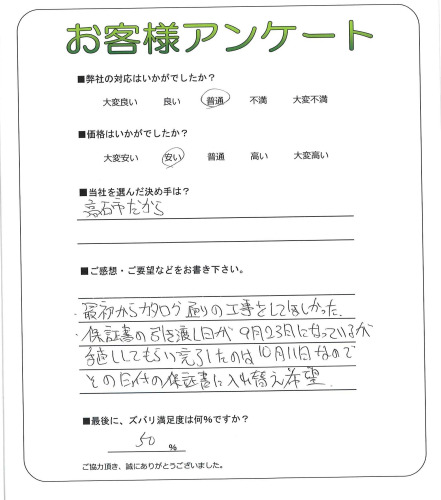 お客様アンケート
■弊社の対応はいかがでしたか？
大変良い 良い 普通 不満 大変不満
■価格はいかがでしたか？
大変安い 安い 普通 高い 大変高い
■当社を選んだ決め手は？
高石市だから
■ご感想・ご要望などをお書き下さい。
・最初からカタログ通りの工事をしてほしかった.
・保証書の引き渡し日が9月23日になっているが
手直ししてもらい完了したのは10月11日なので
その日付の保証書に入れ替え希望.
■最後に、ズバリ満足度は何%ですか？
50 %
ご協力頂き、誠にありがとうございました。